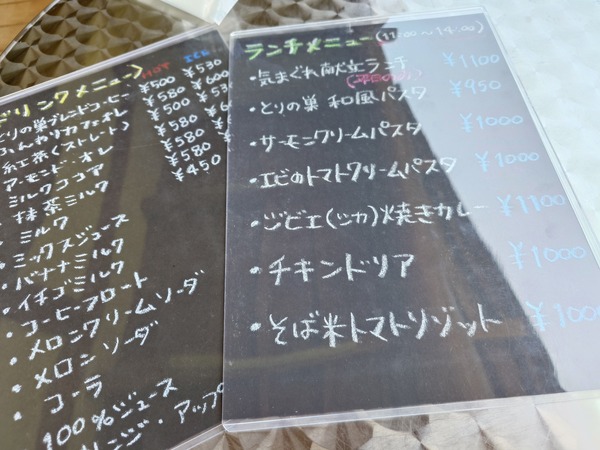 ドリンクメニュー
HOT ICE
とりの巣ブレンドコーヒー ¥500 ¥530
ふんわりカフェオレ ¥580
紅茶(ストレート) ¥500
アーモンド・オレ ¥580
ミルクココア ¥580
抹茶ミルク ¥580
ミルク ¥450
ミックスジュース
バナナミルク
イチゴミルク
・コーヒーフロート
・メロンクリームソーダ
・メロンソーダ
・コーラ
100%ジュース
ランチメニュー(11:00~14:00)
・気まぐれ献立ランチ ¥1100
(平日のみ)
・とりの巣 和風パスタ ¥950
・サーモンクリームパスタ ¥1000
・エビのトマトクリームパスタ ¥1000
・ジビエ(シカ)焼きカレー ¥1100
・チキンドリア ¥1000
・そば米トマトリゾット ¥1000